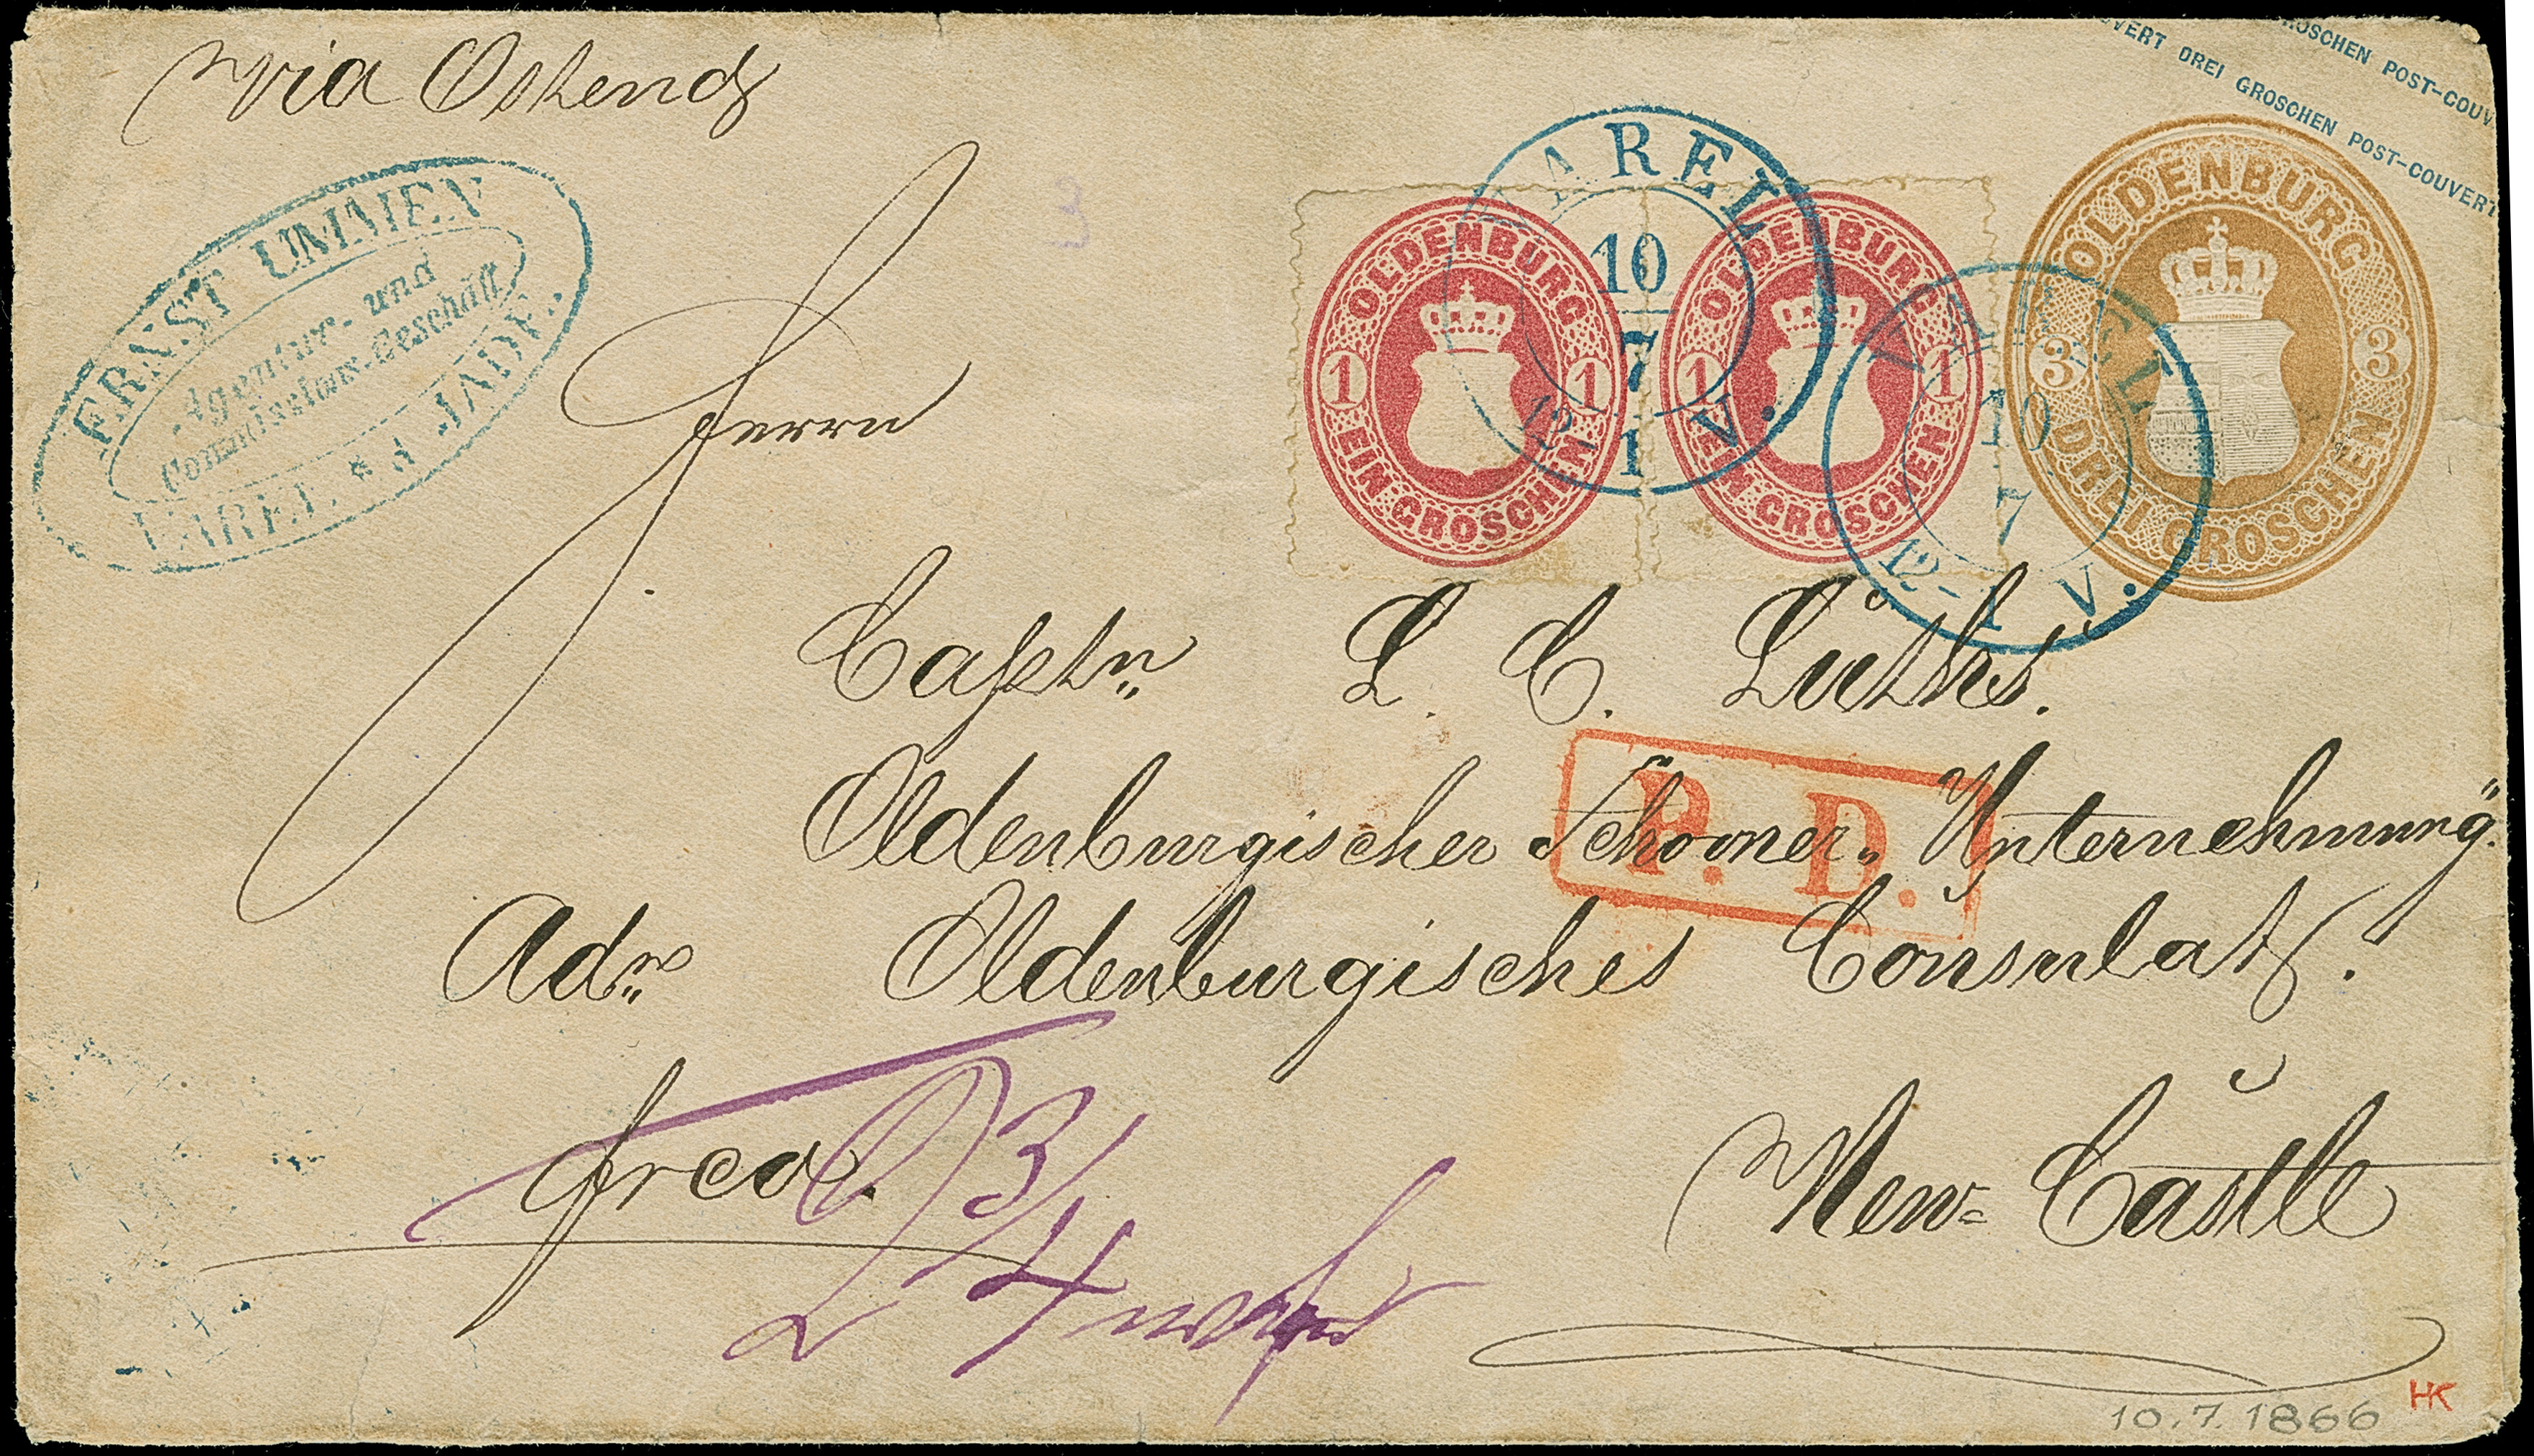 via Ostende
GROSCHEN POST-COUV
VERT DREI GROSCHEN POST-COUVERT
ERNST UMMEN
Agentur- und
Commissions-Geschäft
VAREL * a JADE.
OLDENBURG
1 1
EIN GROSCHEN
OLDENBURG
1 1
EIN GROSCHEN
OLDENBURG
3 3
DREI GROSCHEN
VAREL
10
7
12-1 V.
VAREL
10
7
12-1 V.
Herrn
Captn L. C. Lüths.
Oldenburgischer Schooner „Unternehmung“.
P. D.
Adr. Oldenburgisches Consulat.
frco.
New-Castle
2 3/4
10.7.1866
HK